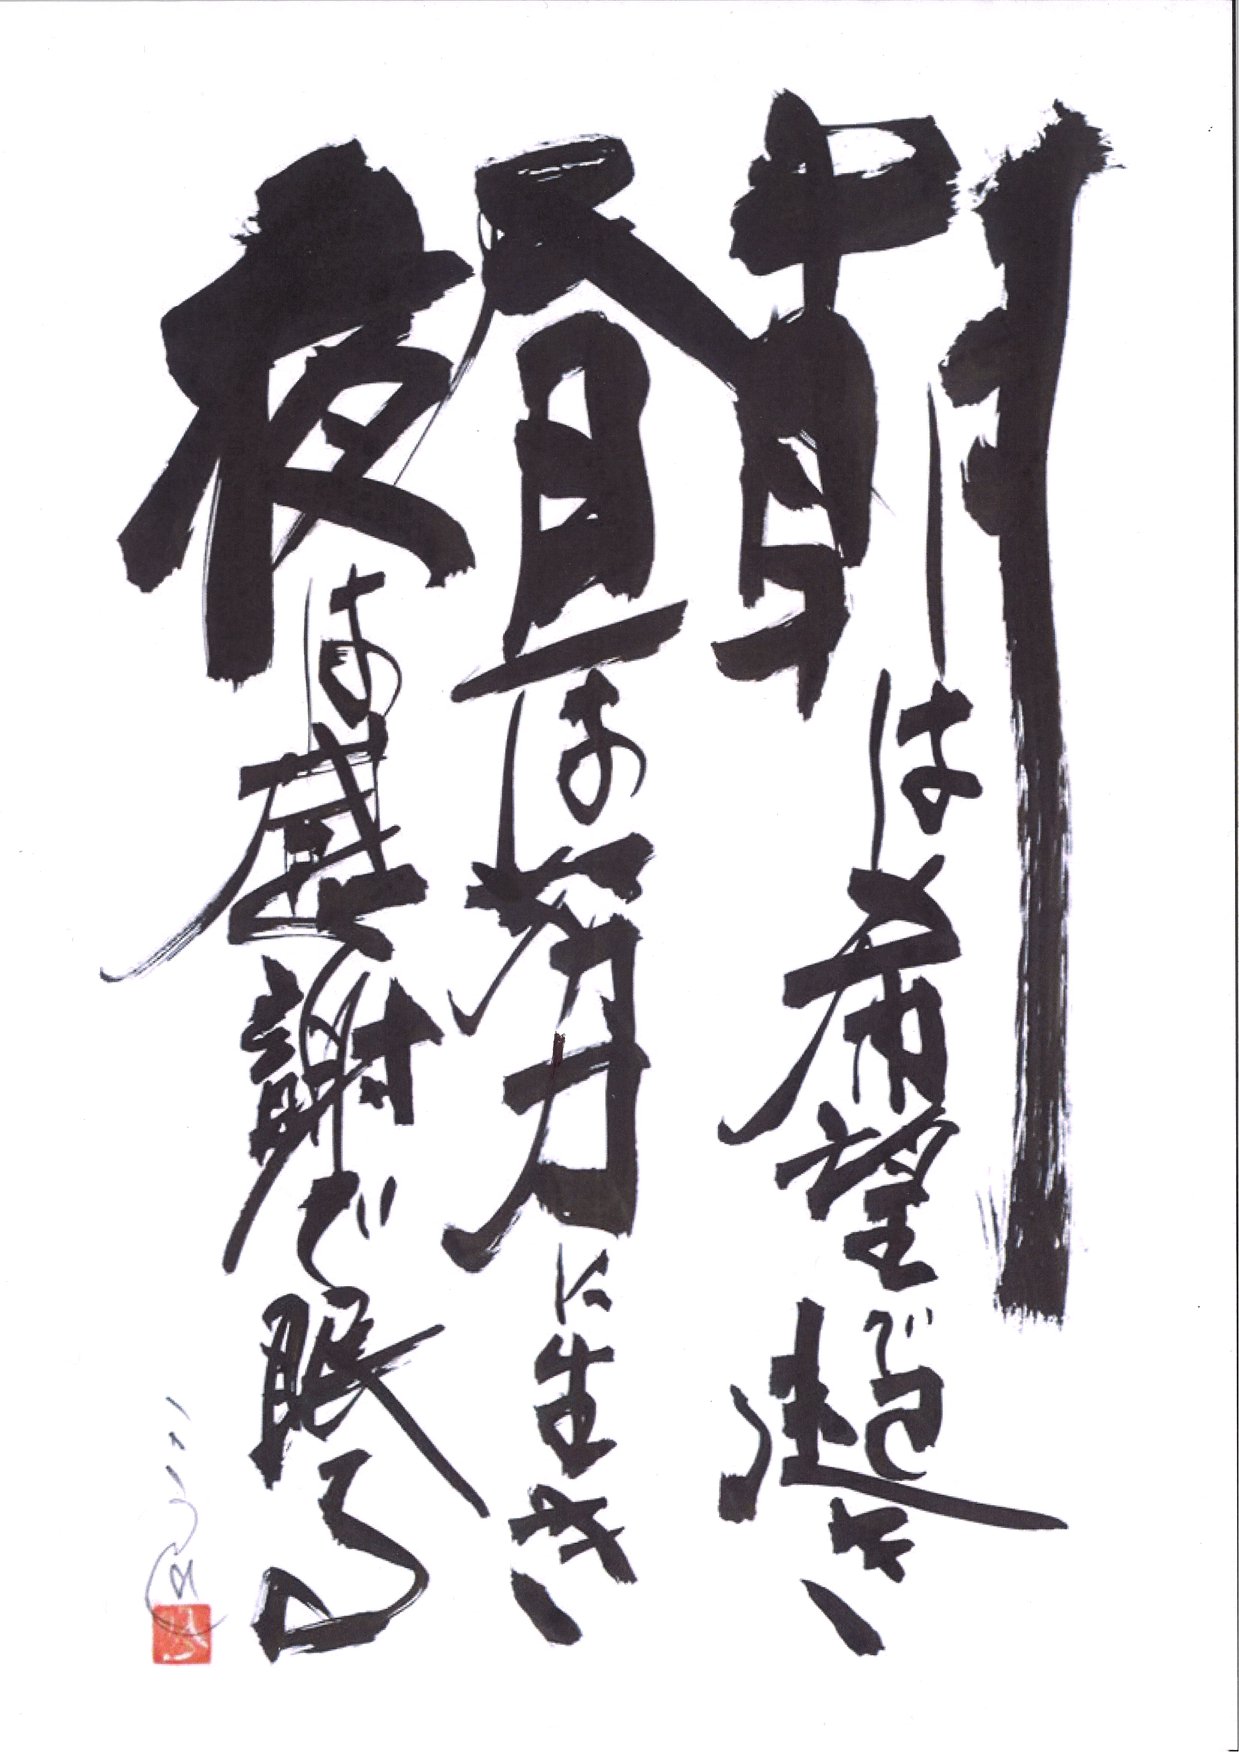 朝は希望で起き、
昼は努力に生き、
夜は感謝で眠る